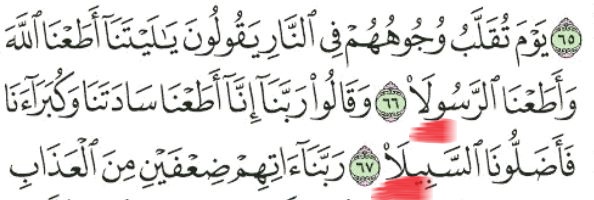 ٦٥ يَوْمَ تُقَلَّبُ وُجُوهُهُمْ فِى ٱلنَّارِ يَقُولُونَ يَٰلَيْتَنَآ أَطَعْنَا ٱللَّهَ
وَأَطَعْنَا ٱلرَّسُولَا۠ ٦٦ وَقَالُوا۟ رَبَّنَآ إِنَّآ أَطَعْنَا سَادَتَنَا وَكُبَرَآءَنَا
فَأَضَلُّونَا ٱلسَّبِيلَا۠ ٦٧ رَبَّنَآ ءَاتِهِمْ ضِعْفَيْنِ مِنَ ٱلْعَذَابِ